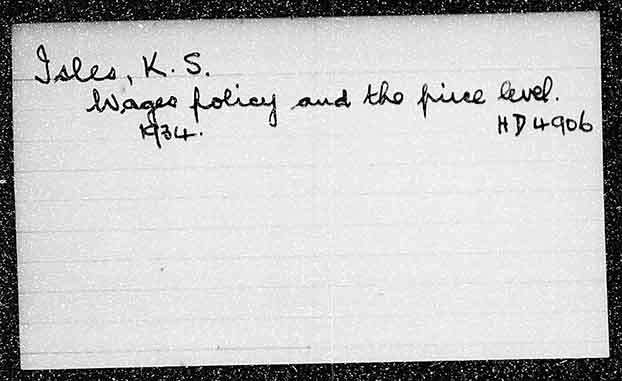 Isles, K. S.
Wages policy and the price level.
1934. HD4906